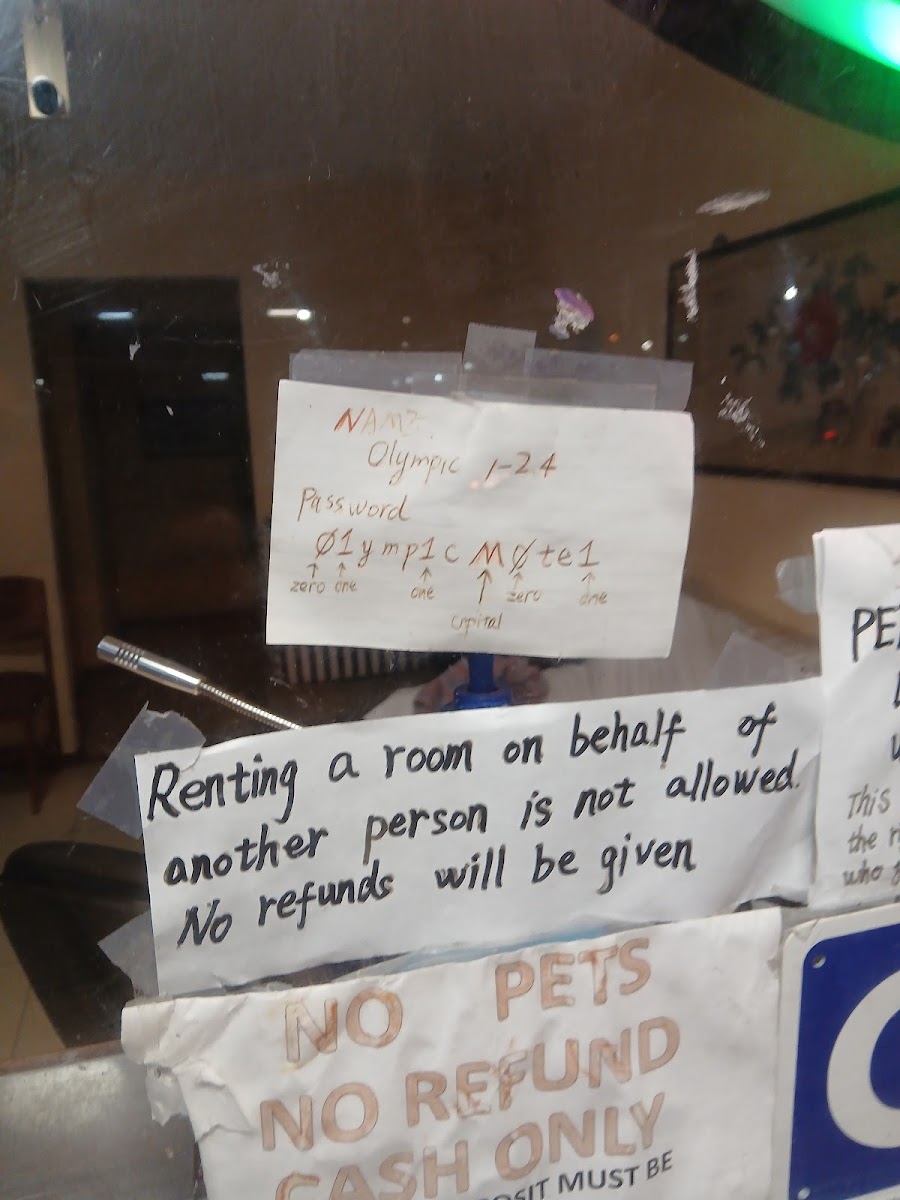 NAME
Olympic 1-24
Password
Ø1ymp1cMØte1
zero one one zero one
capital
Renting a room on behalf of
another person is not allowed.
No refunds will be given
NO PETS
NO REFUND
CASH ONLY
MUST BE
This
the
who